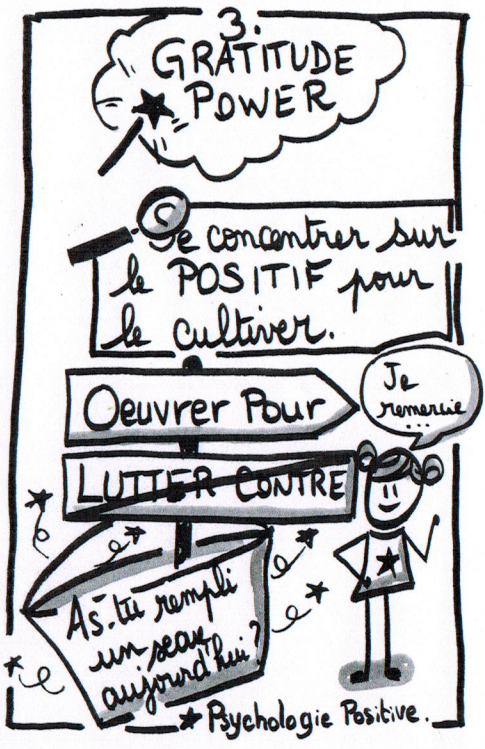 3.
GRATITUDE
POWER
Se concentrer sur
le POSITIF pour
le cultiver.
Oeuvrer Pour
Je
remercie
...
LUTTER CONTRE
As-tu rempli
un seau
aujourd'hui?
Psychologie Positive.